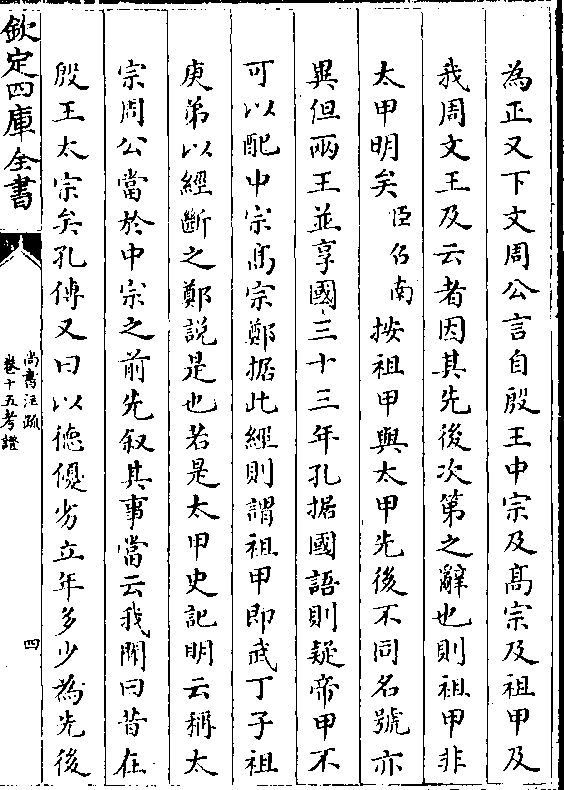 為正又下文周公言自殷王中宗及髙宗及祖甲及
我周文王及云者因其先後次第之辭也則祖甲非
太甲明矣臣召南按祖甲與太甲先後不同名號亦
異但兩王並享國三十三年孔據國語則疑帝甲不
可以配中宗髙宗鄭據此經則謂祖甲即武丁子祖
庚弟以經斷之鄭説是也若是太甲史記明云稱太
宗周公當於中宗之前先叙其事當云我聞曰昔在
殷王太宗矣孔傳又曰以德優劣立年多少為先後
欽定四庫全書
尚書注疏
卷十五考證
四